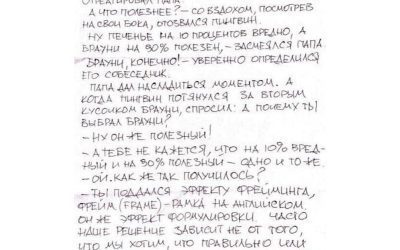 ОТРЕАГИРОВАЛ ПАПА.
А ЧТО ПОЛЕЗНЕЕ? – СО ВЗДОХОМ, ПОСМОТРЕВ
НА СВОИ БОКА, ОТОЗВАЛСЯ ПИНГВИН.
НУ ПЕЧЕНЬЕ НА 10 ПРОЦЕНТОВ ВРЕДНО, А
БРАУНИ НА 90% ПОЛЕЗЕН, – ЗАСМЕЯЛСЯ ПАПА.
БРАУНИ, КОНЕЧНО! – УВЕРЕННО ОПРЕДЕЛИЛСЯ
ЕГО СОБЕСЕДНИК.
ПАПА ДАЛ НАСЛАДИТЬСЯ МОМЕНТОМ. А
КОГДА ПИНГВИН ПОТЯНУЛСЯ ЗА ВТОРЫМ
КУСОЧКОМ БРАУНИ, СПРОСИЛ: А ПОЧЕМУ ТЫ
ВЫБРАЛ БРАУНИ?
– НУ ОН ЖЕ ПОЛЕЗНЫЙ!
– А ТЕБЕ НЕ КАЖЕТСЯ, ЧТО НА 10% ВРЕД-
НЫЙ И НА 90% ПОЛЕЗНЫЙ – ОДНО И ТО ЖЕ.
– ОЙ. КАК ЖЕ ТАК ПОЛУЧИЛОСЬ?
– ТЫ ПОДДАЛСЯ ЭФФЕКТУ ФРЕЙМИНГА,
ФРЕЙМ (FRAME) – РАМКА НА АНГЛИЙСКОМ.
ОН ЖЕ ЭФФЕКТ ФОРМУЛИРОВКИ. ЧАСТО
НАШЕ РЕШЕНИЕ ЗАВИСИТ НЕ ОТ ТОГО,
ЧТО МЫ ХОТИМ, ЧТО ПРАВИЛЬНО ИЛИ